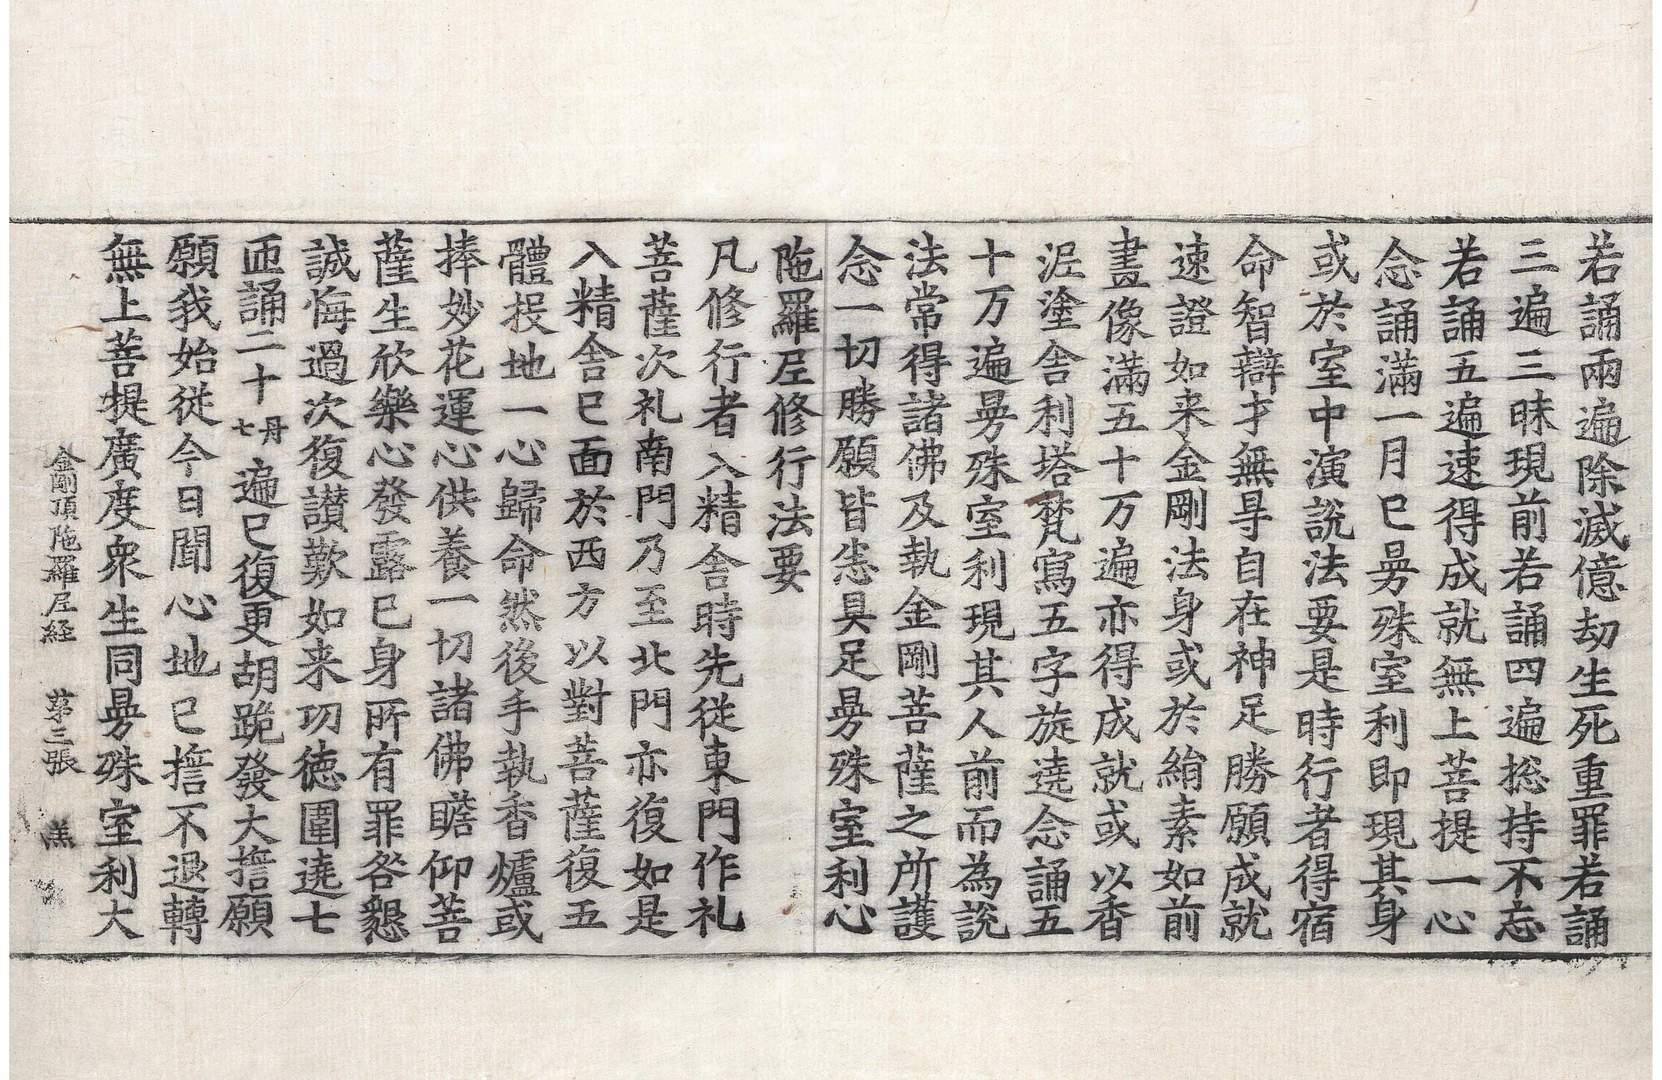 若誦兩遍除滅億劫生死重罪若誦
三遍三昧現前若誦四遍捴持不忘
若誦五遍速得成就無上菩提一心
念誦滿一月已曼殊室利即現其身
或於室中演說法要是時行者得宿
命智辯才無㝵自在神足勝願成就
速證如来金剛法身或於絹素如前
畫像滿五十万遍亦得成就或以香
泥塗舍利塔梵寫五字旋遶念誦五
十万遍曼殊室利現其人前而為說
法常得諸佛及執金剛菩薩之所護
念一切勝願皆悉具足曼殊室利心
陁羅尼修行法要
凡修行者入精舍時先從東門作礼
菩薩次礼南門乃至北門亦復如是
入精舍已面於西方以對菩薩復五
體投地一心歸命然後手執香爐或
捧妙花運心供養一切諸佛瞻仰菩
薩生欣樂心發露已身所有罪咎懇
誠悔過次復讃歎如来功徳圍遶七
匝誦二十丹七遍已復更胡跪發大擔願
願我始從今日聞心地已擔不退轉
無上菩提廣度衆生同曼殊室利大
金剛頂陁羅尼経 第三張 羔